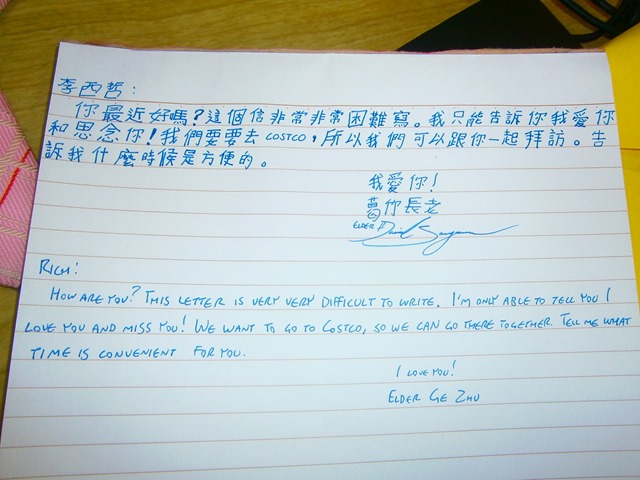 李西哲:
你最近好嗎?這個信非常非常困難寫。我只能告訴你我愛你
和思念你!我們要要去 COSTCO,所以我們可以跟你一起拜訪。告
訴我什麼時候是方便的。
我愛你!
葛你長老
ELDER
RICH:
HOW ARE YOU? THIS LETTER IS VERY VERY DIFFICULT TO WRITE. I'M ONLY ABLE TO TELL YOU I
LOVE YOU AND MISS YOU! WE WANT TO GO TO COSTCO, SO WE CAN GO THERE TOGETHER. TELL ME WHAT
TIME IS CONVENIENT FOR YOU.
I LOVE YOU!
ELDER GE ZHU